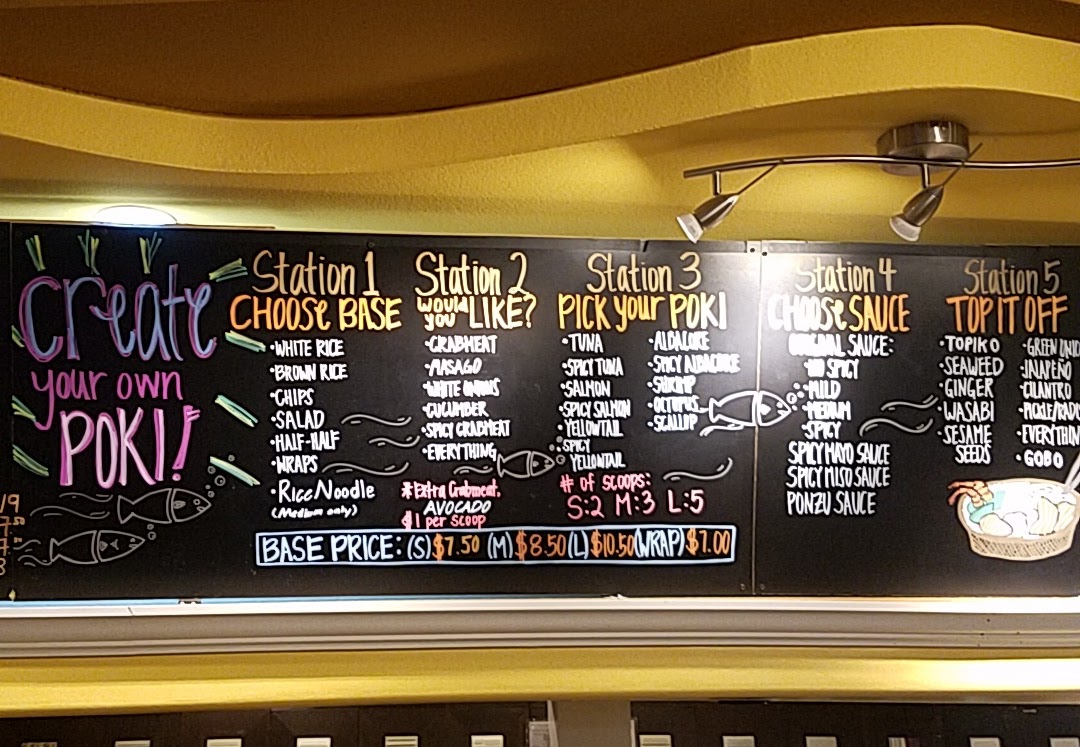 Create
your own
POKI!
Station 1
CHOOSE BASE
•WHITE RICE
•BROWN RICE
•CHIPS
•SALAD
•HALF-HALF
•WRAPS
•Rice Noodle
(Medium only)
Station 2
would you LIKE?
•CRABMEAT
•MASAGO
•WHITE ONIONS
•CUCUMBER
•SPICY CRABMEAT
•EVERYTHING
*Extra Crabmeat,
AVOCADO
$1 per scoop
Station 3
PICK your POKI
•TUNA
•SPICY TUNA
•SALMON
•SPICY SALMON
•YELLOWTAIL
•SPICY
YELLOWTAIL
•ALBACORE
•SPICY ALBACORE
•SHRIMP
•OCTOPUS
•SCALLOP
# of scoops:
S:2 M:3 L:5
BASE PRICE: (S) $7.50 (M) $8.50 (L) $10.50 (WRAP) $7.00
Station 4
CHOOSE SAUCE
ORIGINAL SAUCE:
•NO SPICY
•MILD
•MEDIUM
•SPICY
SPICY MAYO SAUCE
SPICY MISO SAUCE
PONZU SAUCE
Station 5
TOP IT OFF
•TOPIKO
•SEAWEED
•GINGER
•WASABI
•SESAME
SEEDS
•GREEN
•JALAPEÑO
•CILANTRO
•EVERYTHIN
•GOBO